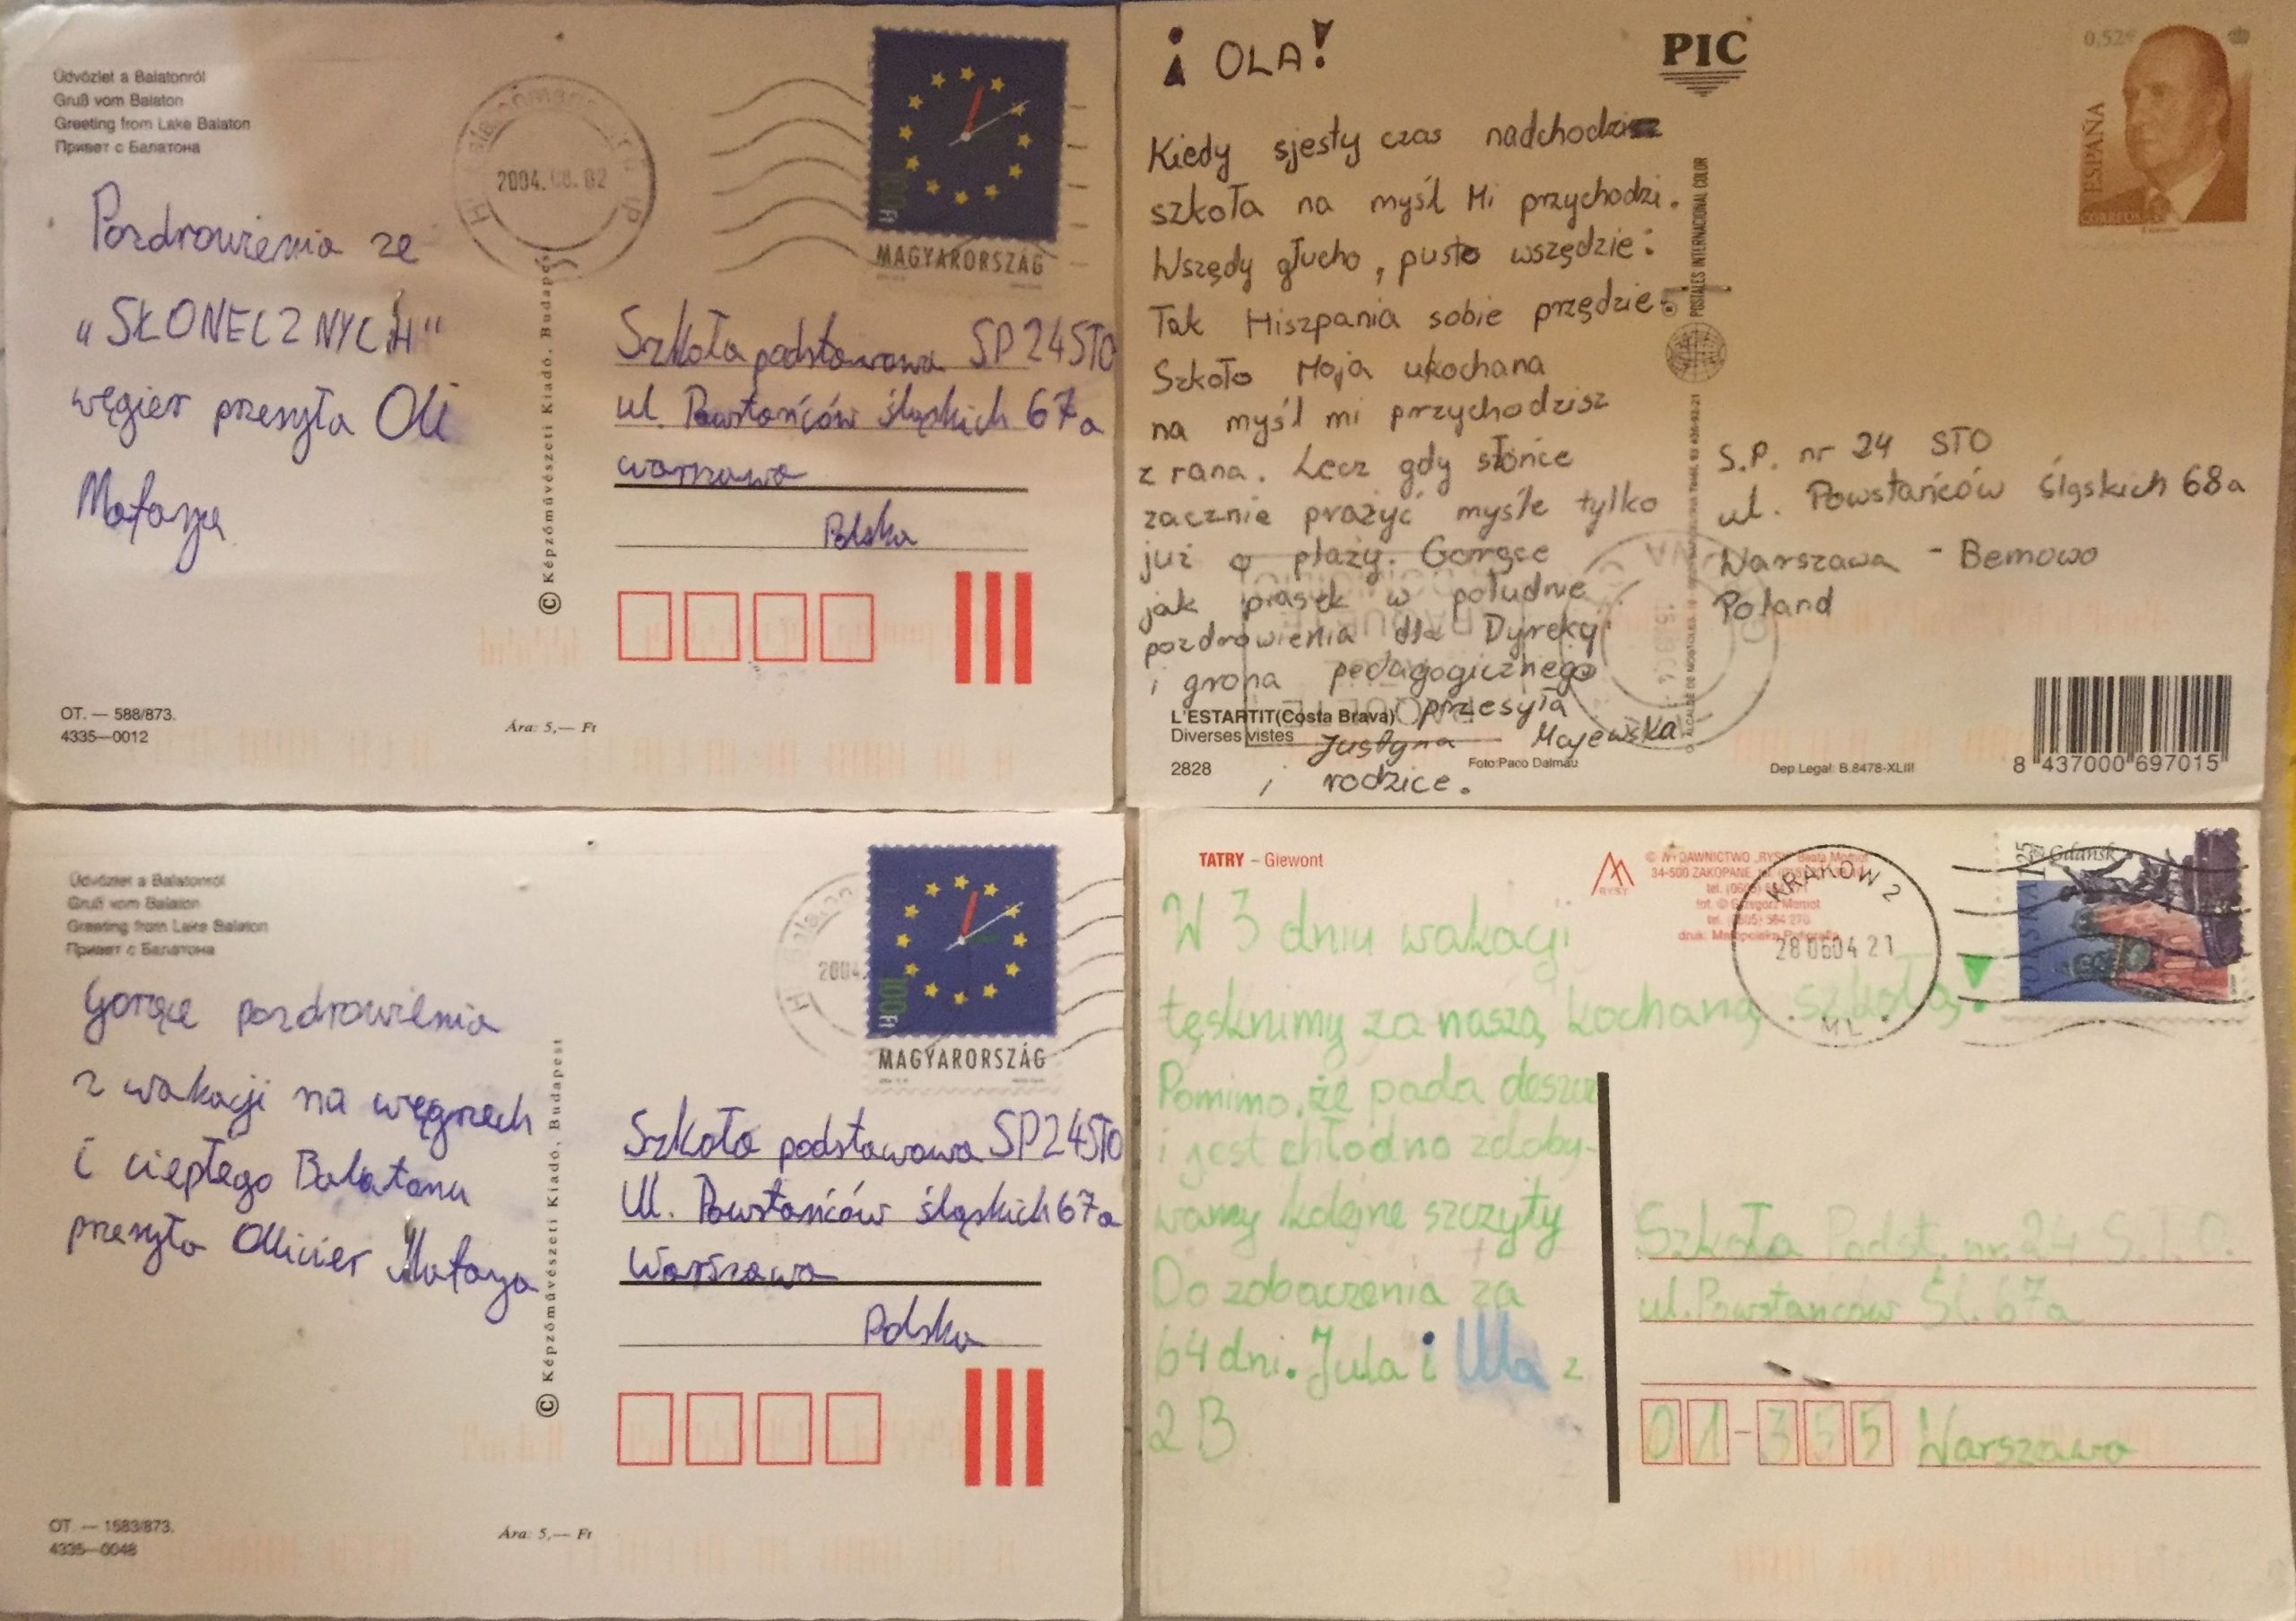 Üdvözlet a Balatonról
Gruß vom Balaton
Greeting from Lake Balaton
Привет с Балатона
2004. 02
100Ft
MAGYARORSZÁG
Pozdrowienia ze
„SŁONECZNYCH"
węgier przesyła Oli
Mataya
© Képzőművészeti Kiadó, Budapest
Szkoła podstawowa SP24STO
ul. Powstańców śląskich 67a
warszawa
Polska
OT. — 588/873.
4335—0012
Ára: 5,— Ft
¡OLA!
PIC
0,52€
ESPAÑA
CORREOS
Kiedy sjesty czas nadchodzi
szkoła na myśl Mi przychodzi.
Wszędy głucho, pusto wszędzie:
Tak Hiszpania sobie przędzie.
Szkoło Moja ukochana
na myśl mi przychodzisz
z rana. Lecz gdy słońce
zacznie prażyć myśle tylko
już o plaży. Gorące
jak piasek w południe
pozdrowienia dla Dyrekcji
i grona pedagogicznego
przesyła
Justyna Majewska
i rodzice.
POSTALES INTERNACIONAL COLOR
S.P. nr 24 STO
ul. Powstańców śląskich 68a
Warszawa - Bemowo
Poland
L'ESTARTIT(Costa Brava)
Diverses vistes
2828
Foto:Paco Dalmau
Dep.Legal: B.8478-XLIII
8 437000 697015
Üdvözlet a Balatonról
Gruß vom Balaton
Greeting from Lake Balaton
Привет с Балатона
2004.
100Ft
MAGYARORSZÁG
Gorące pozdrowienia
z wakacji na węgrzech
i ciepłego Balatonu
przesyła Olliwier Mataya
© Képzőművészeti Kiadó, Budapest
Szkoła podstawowa SP24STO
Ul. Powstańców śląskich 67a
Warszawa
Polska
OT. — 1583/873.
4335—0048
Ára: 5,— Ft
TATRY – Giewont
RYSY
© WYDAWNICTWO „RYSY" Beata Momot
34-500 ZAKOPANE
fot. © Grzegorz Momot
KRAKÓW 2
28 06 04 21
ML
Gdańsk
POLSKA
W 3 dniu wakacji
tęsknimy za naszą kochaną szkołą!
Pomimo, że pada deszcz
i jest chłodno zdoby-
wamy kolejne szczyty
Do zobaczenia za
64 dni. Jula i Ula z
2 B
Szkoła Podst. nr 24 S.T.O.
ul. Powstańców Śl. 67a
01-355 Warszawa